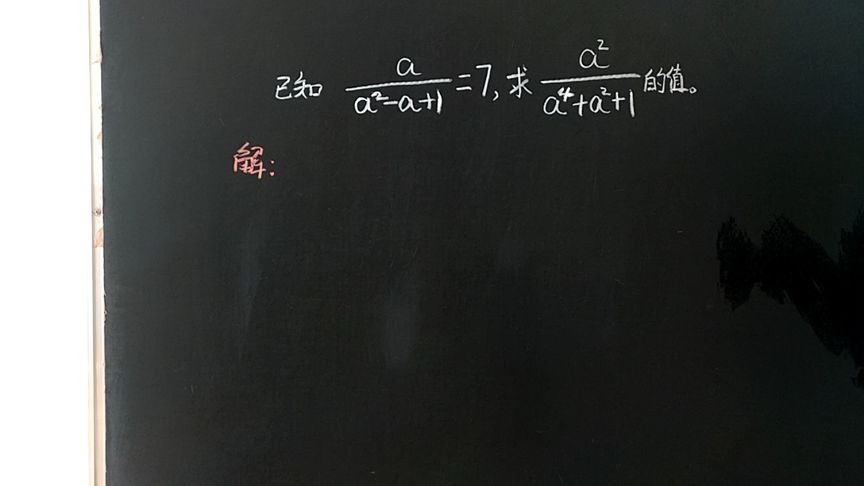 已知 a/(a²-a+1)=7,求 a²/(a⁴+a²+1) 的值。
解: